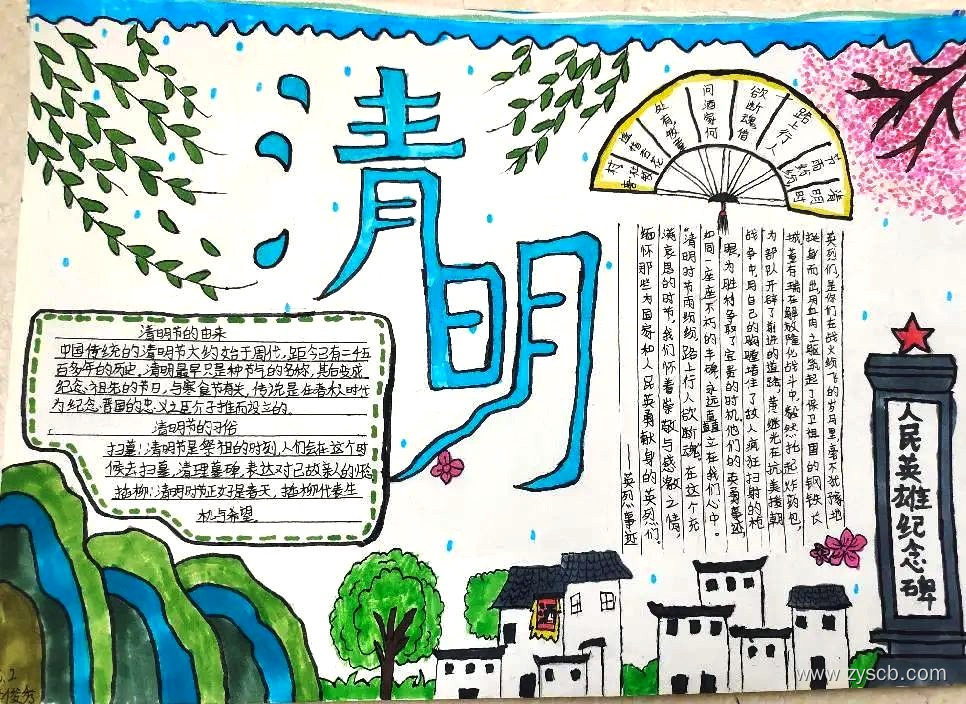 清明
清明时
节雨纷纷
路上行人
欲断魂,借
问酒家何
处有,牧童
遥指杏花
村
清明节的由来
中国传统的清明节大约始于周代,距今已有二千五
百多年的历史,清明最早只是种节气的名称,其白变成
纪念祖先的节日,与寒食节有关,传说是在春秋时代
为纪念晋国的忠义之臣介子推而设立的。
清明节的习俗
扫墓:清明节是祭祖的时刻,人们会在这个时
候去扫墓,清理墓碑,表达对已故亲人的怀
插柳:清明时节正好是春天,插柳代表生
机与希望。
英烈们,是你们在战火纷飞的岁月里,毫不犹豫地
挺身而出,用血肉之躯筑起了保卫祖国的钢铁长
城。董存瑞在解放隆化战斗中,毅然托起炸药包,
为部队开辟了前进的道路,黄继光在抗美援朝
战争中,用自己的胸膛堵住了敌人疯狂扫射的枪
眼,为胜利争取了宝贵的时机,他们的英勇事迹,
如同一座座不朽的丰碑,永远矗立在我们心中。
清明时节雨纷纷,路上行人欲断魂,在这个充
满哀思的时节,我们怀着崇敬与感激之情,
缅怀那些为国家和人民英勇献身的英烈们。
——英烈事迹
人民英雄纪念碑
酒
www.zyscb.com